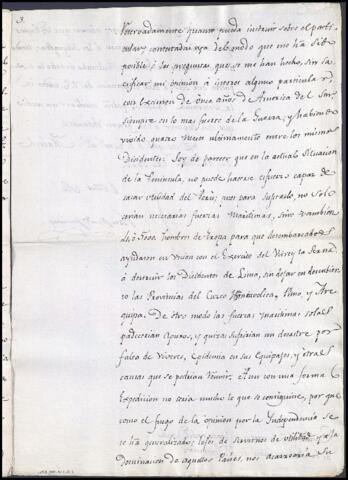 3.
Reservadamente quanto pueda instruir sobre el parti-
cular, y contextadas ya del modo que me ha sido
posible á las preguntas que se me han hecho, sin sa-
crificar mi opinion á interes alguno particular,
con exàmen de once años de America del Sur
siempre en lo mas fuerte de la Guerra; y habiendo
vivido quatro meses ultimamente entre los mismos
Disidentes: Soy de parecer que en la actual situacion
de la Peninsula, no puede hacerse esfuerzo capaz de
sacar utilidad del Perú; mas para lograrlo, no solo
serán necesarias fuerzas Maritimas, sino tambien
hombres de tropa para que desembarcados
ayudasen en union con el Exercito del Virrey la Serna
á destruir los Disidentes de Lima, sin dejar en descubier-
to las Provincias del Cuzco Huancavelica, Puno, y Are-
quipa. De otro modo las fuerzas maritimas solas
padecerian apuros, y quizá sufririan un desastre por
falta de Viveres, Epidemia en sus Equipajes, y otras
causas que se podrian reunir. Aun con una formal
Expedicion no seria mucho lo que se consiguiere, por que
como el fuego de la opinion por la Independencia se
ha generalizado; lejos de servirnos de utilidad ya la
Dominacion de aquellos Paises, nos acarrearia su